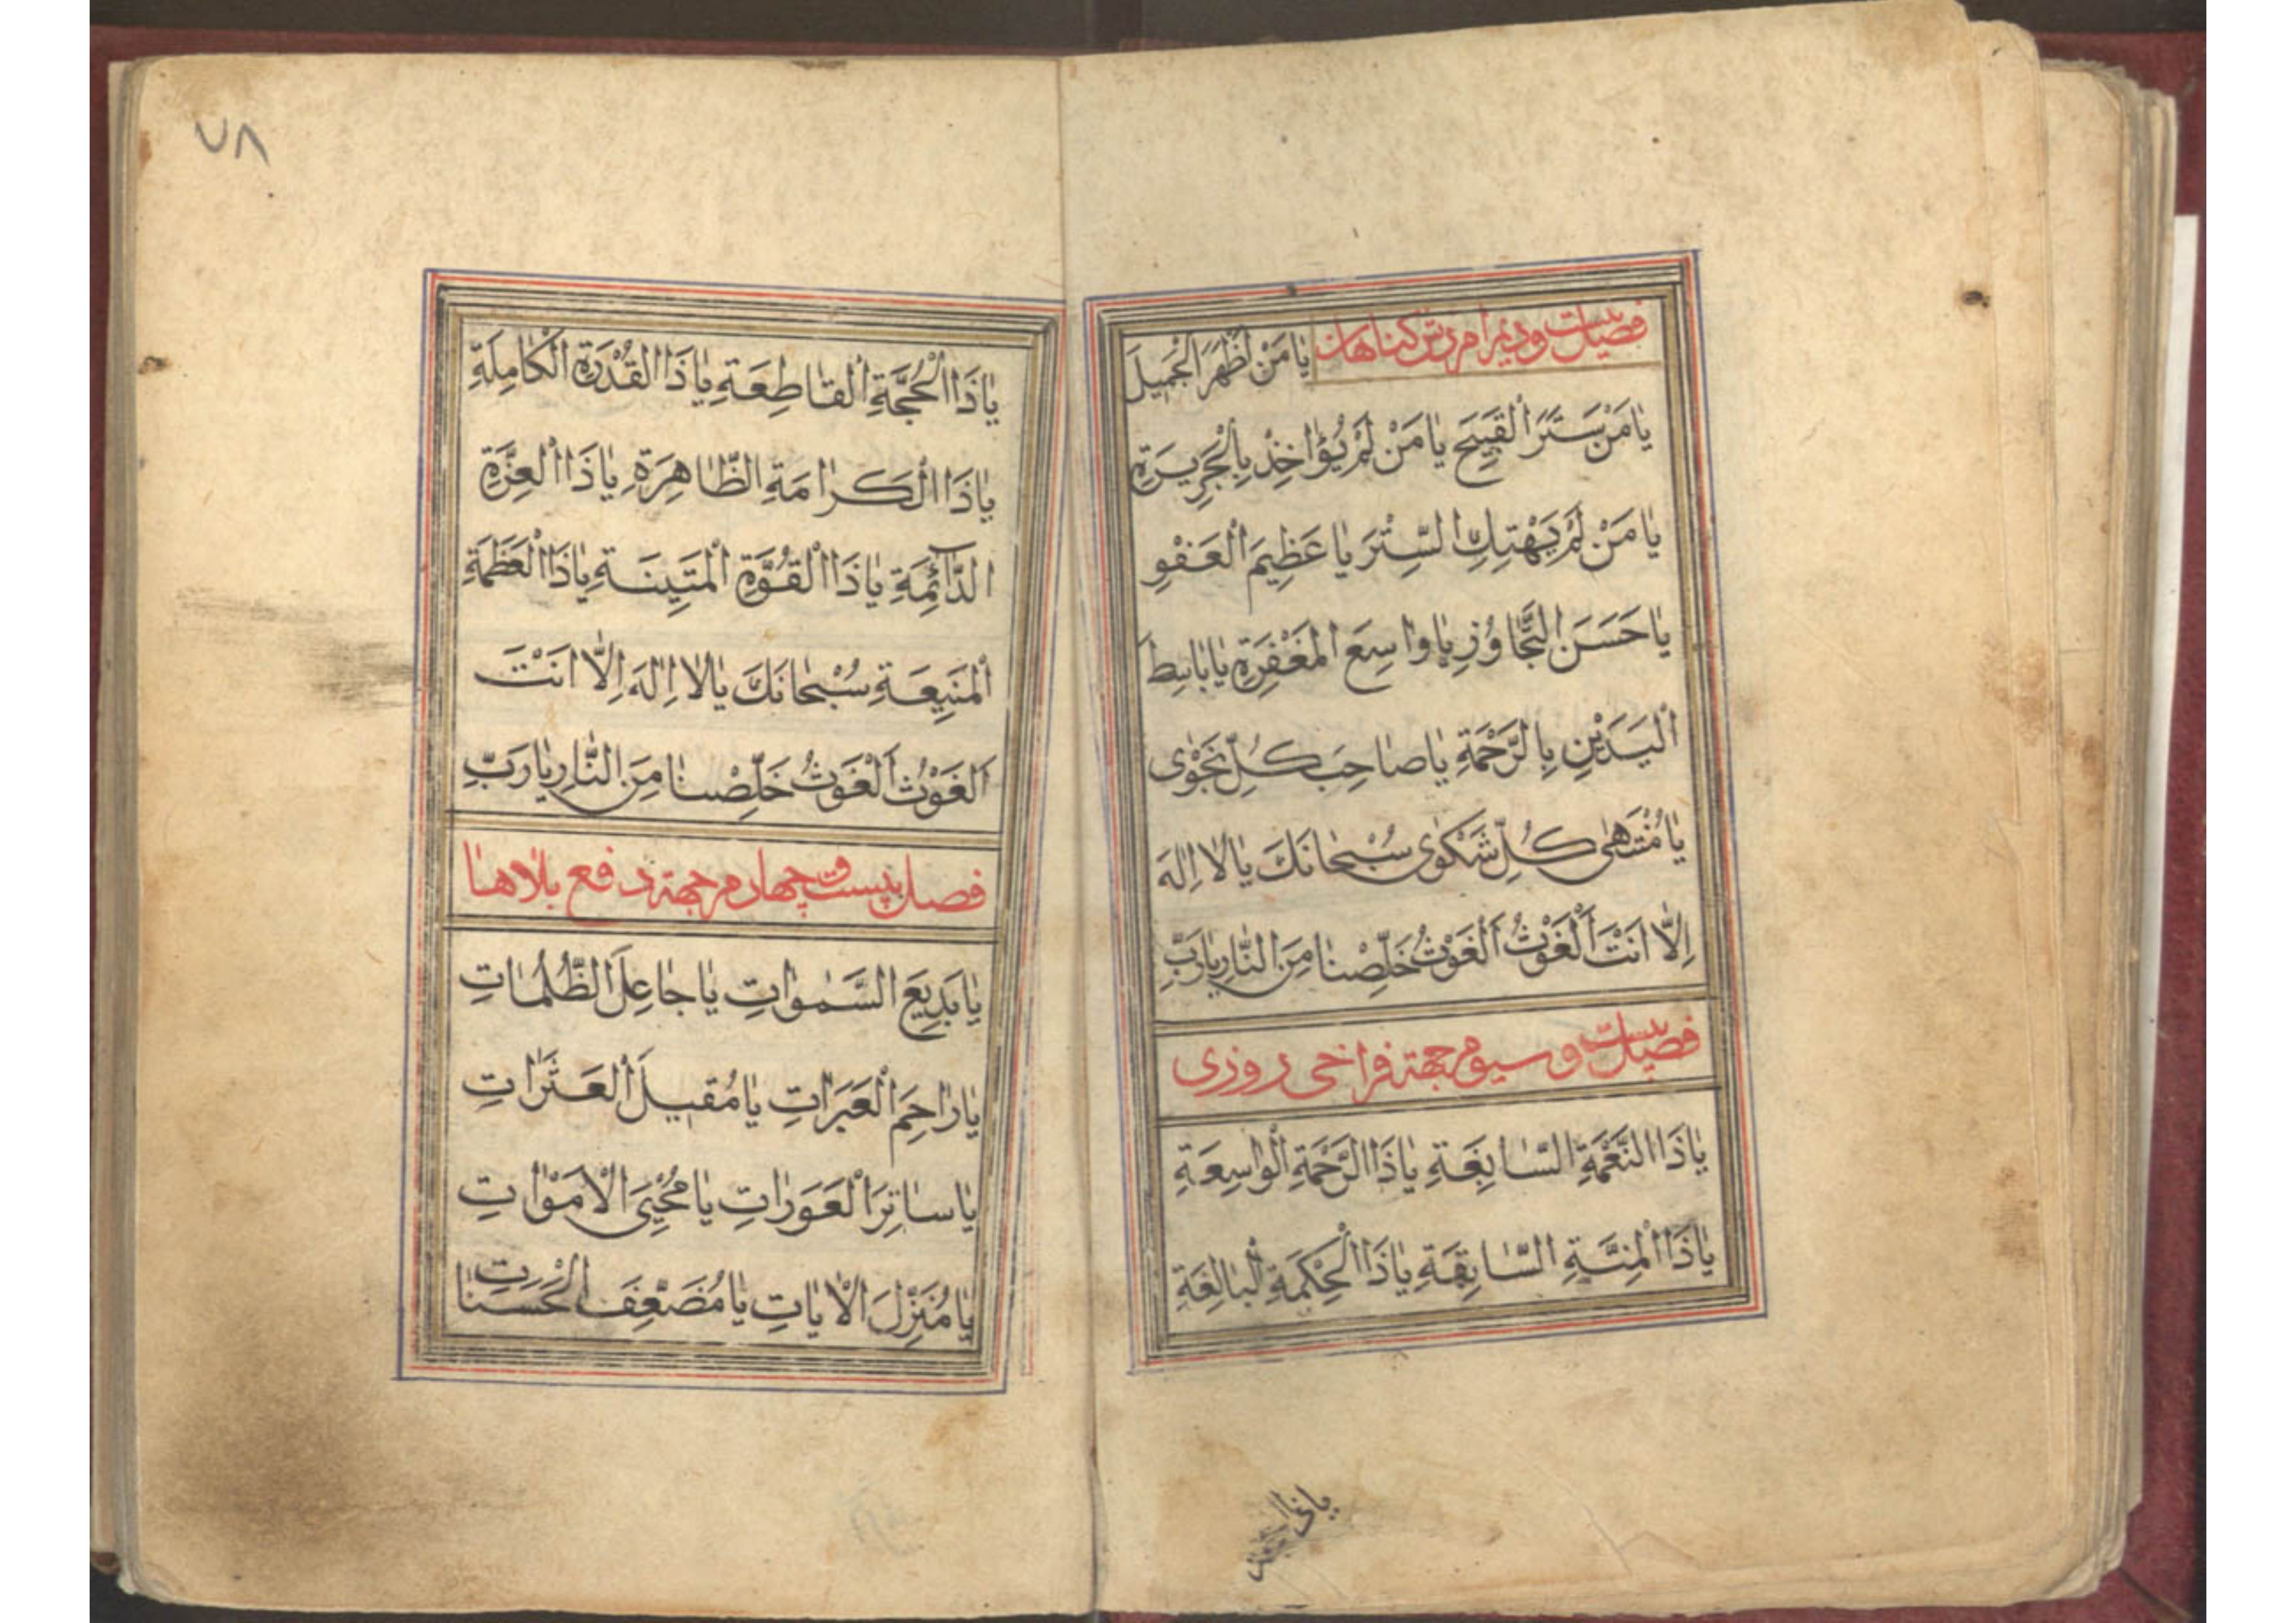 فصل بیست و دویم امرزش کناهان یٰا مَنْ اَظْهَرَ الْجَمیلَ
یٰا مَنْ سَتَرَ الْقَبیحَ یٰا مَنْ لَمْ یُؤٰاخِذْ بِالْجَریرَةِ
یٰا مَنْ لَمْ یَهْتِكِ السِّتْرَ یٰا عَظیمَ الْعَفْوِ
یٰا حَسَنَ التَّجٰاوُزِ یٰا وٰاسِعَ الْمَغْفِرَةِ یٰا بٰاسِطَ
الْیَدَیْنِ بِالرَّحْمَةِ یٰا صٰاحِبَ كُلِّ نَجْوٰی
یٰا مُنْتَهٰی كُلِّ شَكْوٰی سُبْحٰانَكَ یٰا لٰا اِلٰهَ
اِلّٰا اَنْتَ اَلْغَوْثُ اَلْغَوْثُ خَلِّصْنٰا مِنَ النّٰارِ یٰا رَبِّ
فصل بیست و سیوم جهة فراخی روزی
یٰا ذَا النِّعْمَةِ السّٰابِغَةِ یٰا ذَا الرَّحْمَةِ الْوٰاسِعَةِ
یٰا ذَا الْمِنَّةِ السّٰابِقَةِ یٰا ذَا الْحِكْمَةِ الْبٰالِغَةِ
یا ذا الحجة
٧٨
یٰا ذَا الْحُجَّةِ الْقٰاطِعَةِ یٰا ذَا الْقُدْرَةِ الْكٰامِلَةِ
یٰا ذَا الْكَرٰامَةِ الظّٰاهِرَةِ یٰا ذَا الْعِزَّةِ
الدّٰآئِمَةِ یٰا ذَا الْقُوَّةِ الْمَتینَةِ یٰا ذَا الْعَظَمَةِ
الْمَنیعَةِ سُبْحٰانَكَ یٰا لٰا اِلٰهَ اِلّٰا اَنْتَ
اَلْغَوْثُ اَلْغَوْثُ خَلِّصْنٰا مِنَ النّٰارِ یٰا رَبِّ
فصل بیست و چهارم جهة دفع بلاها
یٰا بَدیعَ السَّمٰوٰاتِ یٰا جٰاعِلَ الظُّلُمٰاتِ
یٰا رٰاحِمَ الْعَبَرٰاتِ یٰا مُقیلَ الْعَثَرٰاتِ
یٰا سٰاتِرَ الْعَوَرٰاتِ یٰا مُحْیِیَ الْاَمْوٰاتِ
یٰا مُنَزِّلَ الْاٰیٰاتِ یٰا مُضَعِّفَ الْحَسَنٰاتِ